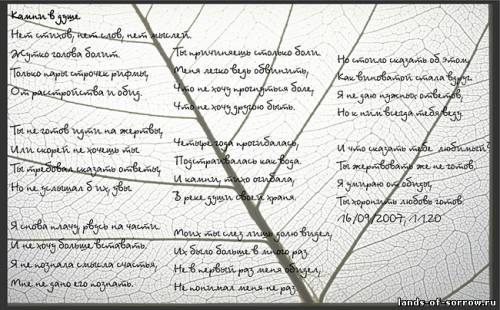 Камни в душе.
Нет стихов, нет слов, нет мыслей.
Жутко голова болит.
Только пары строчек рифмы,
От расстройства и обид.
Ты не готов идти на жертвы,
Или скорей не хочешь ты.
Ты требовал сказать ответы,
Но не услышал б их, увы.
Я снова плачу, рвусь на части.
И не хочу больше вставать.
Я не познала смысла счастья,
Мне не дано его познать.
Ты причиняешь столько боли.
Меня легко ведь обвинить,
Что не хочу прогнуться боле,
Что не хочу другою быть.
Четыре года прогибалась,
Подстраивалась как вода.
И камни, тихо огибала,
В реке души своей храня.
Моих ты слез лишь долю видел,
Их было больше в много раз.
Не в первый раз меня обидел,
Не понимал меня не раз.
Но стоило сказать об этом,
Как виноватой стала вдруг.
Я не даю нужных ответов,
Но к ним всегда тебя веду.
И что сказать тебе, любимый?
Ты жертвовать же не готов.
Я умираю от обиды,
Ты хоронить любовь готов.
16/09/2007, 11:20
lands-of-sorrow.ru